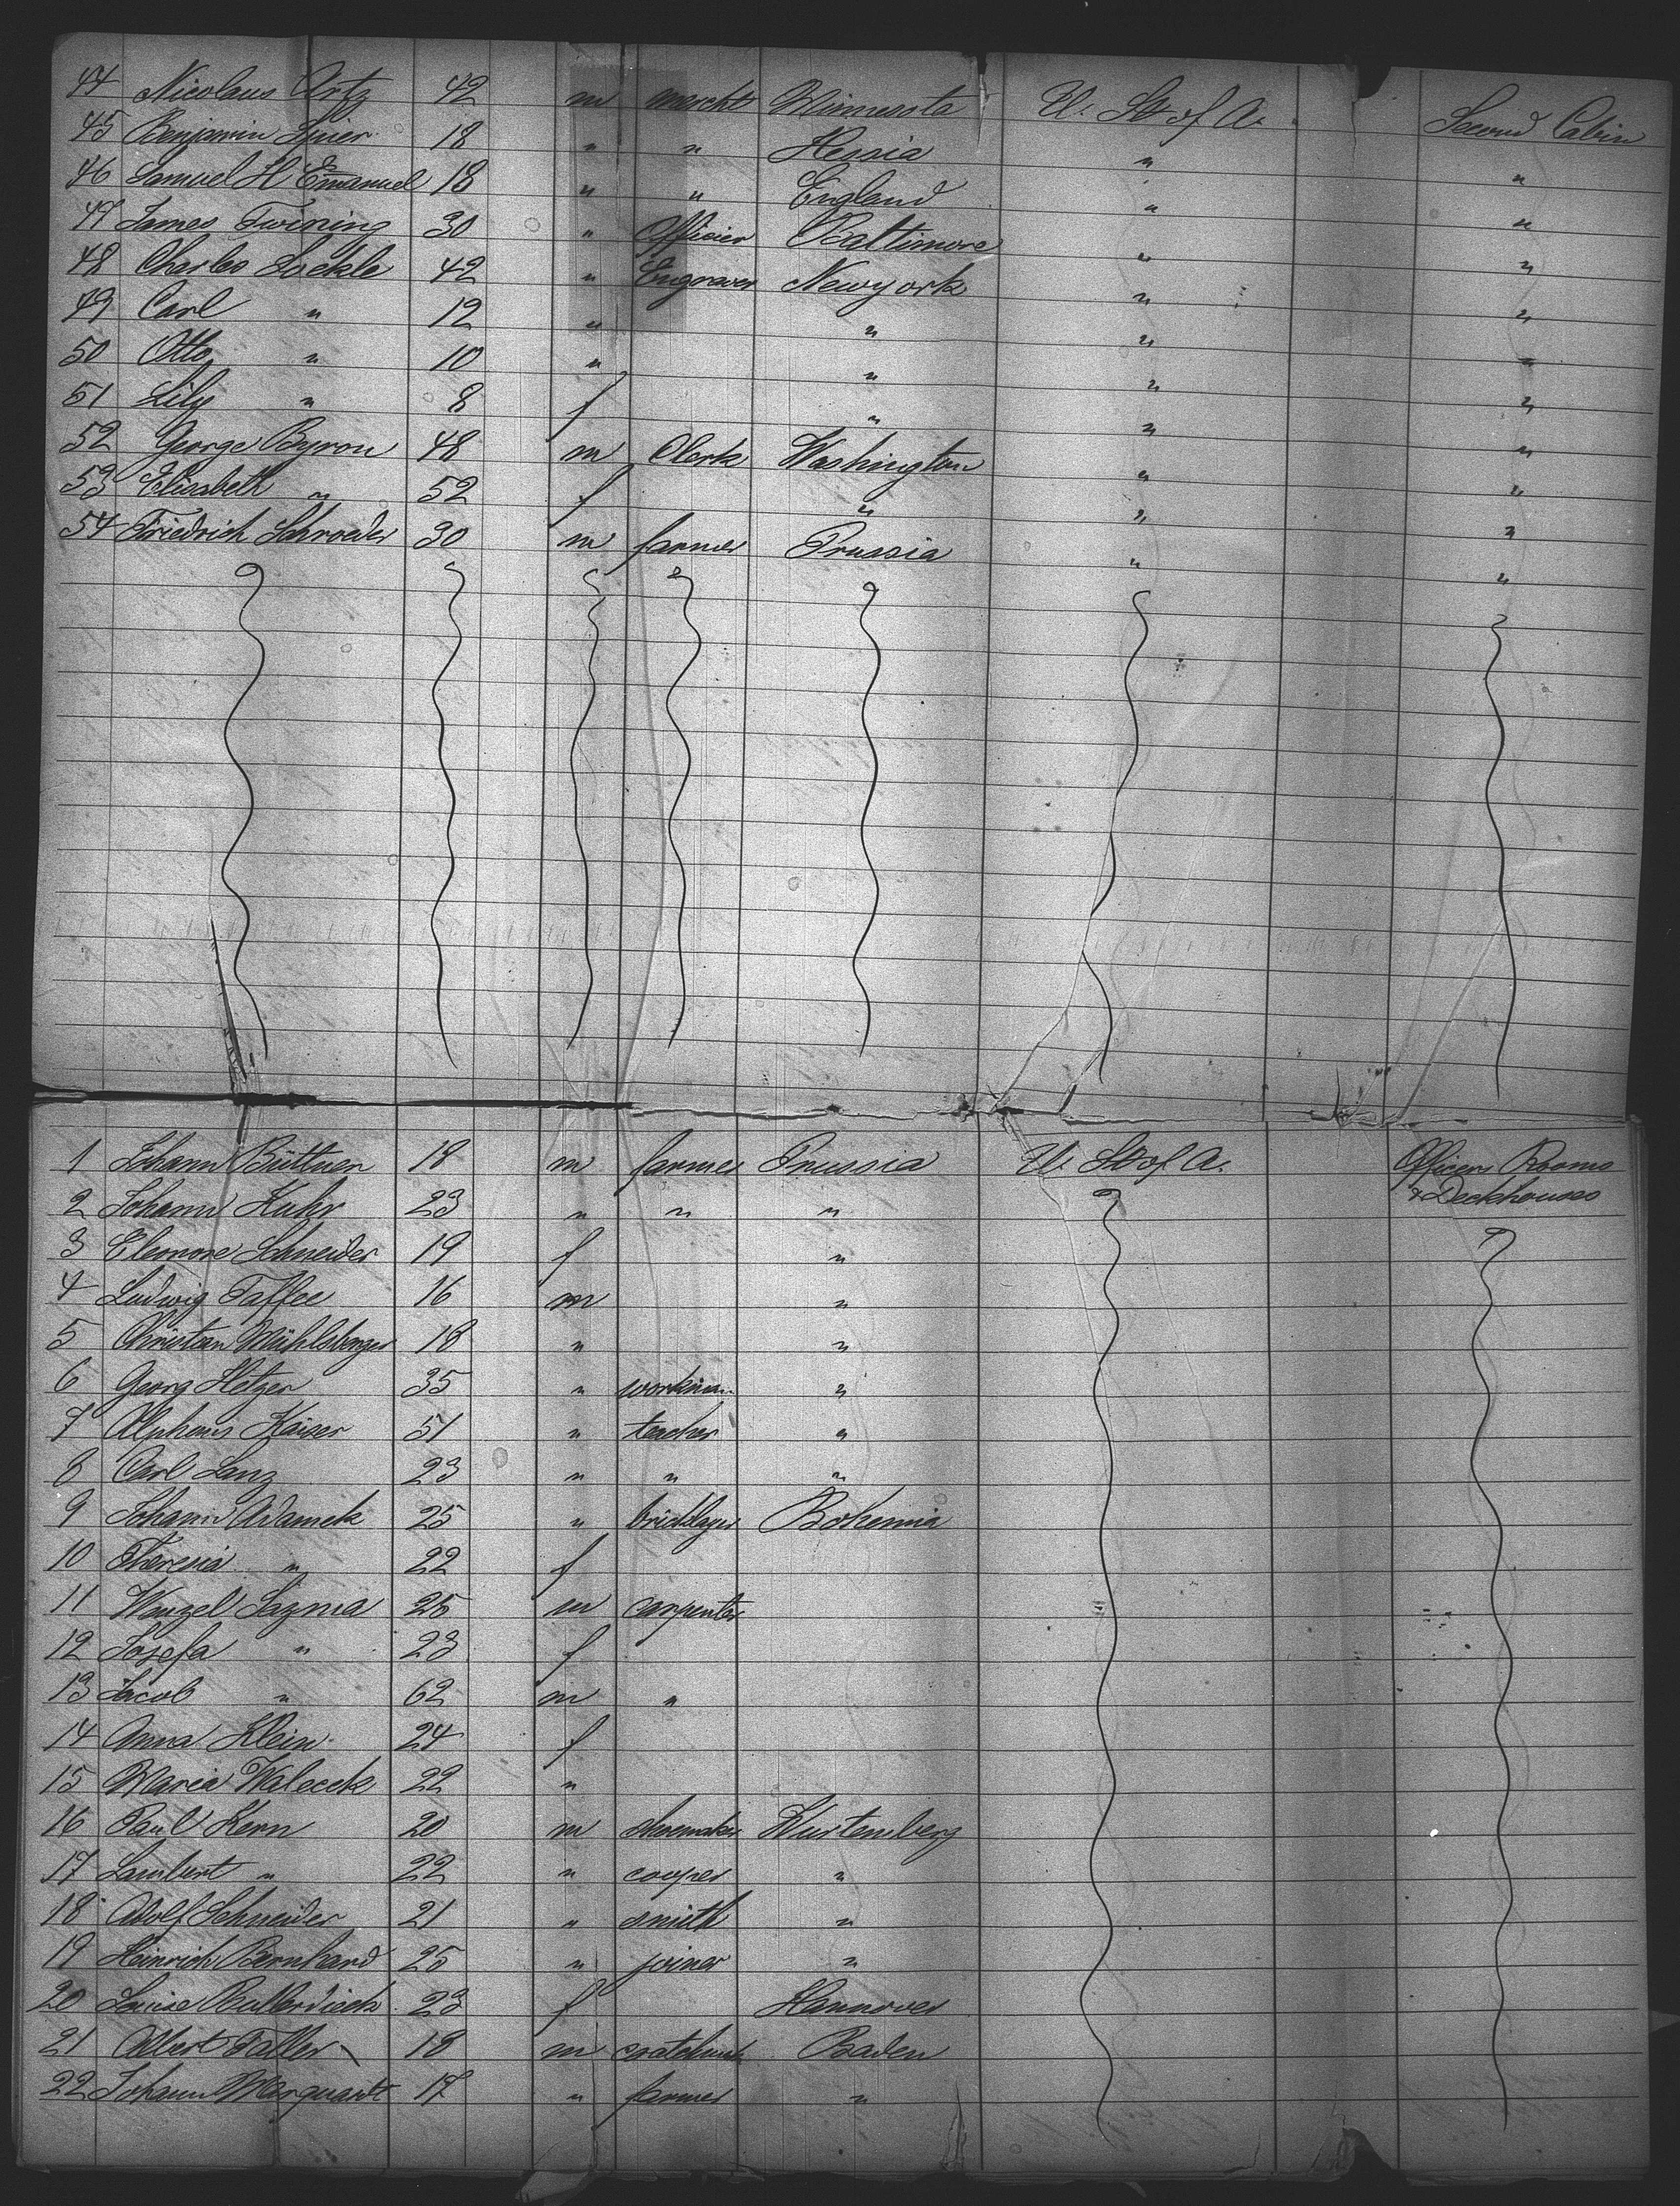 44 Nicolaus Artz 42 m mercht Minnesota U. St of A. Second Cabin
45 Benjamin 18 " " Hessia " "
46 Samuel H Emanuel 18 " " England " "
47 James Twining 30 " Officier Baltimore " "
48 Charles Lockle 42 " Engraver Newyork " "
49 Carl " 12 " " " "
50 Otto " 10 " " " "
51 Lily " 8 f " " "
52 George Byron 48 m Clerk Washington " "
53 Elisabeth " 52 f " " "
54 Friedrich Schroeder 30 m farmer Prussia " "
1 Johann Büttner 18 m farmer Prussia U. St of A. Officers Rooms
2 Johann Kuhr 23 " " " & Deckhouses
3 Eleonore Schneider 19 f "
4 Ludwig Taffee 16 m "
5 Christian Mühlsberger 18 " "
6 Georg Hetzer 35 " workman "
7 Alphons Kaiser 51 " teacher "
8 Carl Lanz 23 " " "
9 Johann Adamek 25 " bricklayer Bohemia
10 Theresia " 22 f
11 Wenzel Sazma 25 m carpenter
12 Josefa " 23 f
13 Jacob " 62 m "
14 Anna Klein 24 f
15 Maria Walecek 22 "
16 Paul Kern 20 m shoemaker Wurtemberg
17 Lambert " 22 " cooper "
18 Adolf Schneider 21 " smith "
19 Heinrich Bernhard 25 " joiner "
20 Louise Bullerdieck 23 f Hannover
21 Albert Faller 18 m Baden
22 Johann Marquardt 17 " farmer "